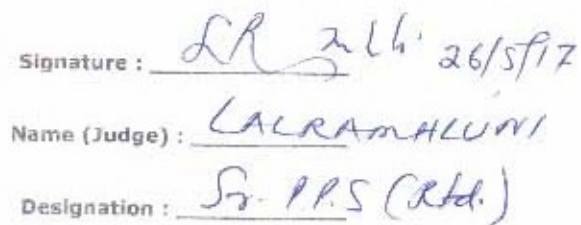 Signature : 26/5/17
Name (Judge) : LALRAMHLUNI
Designation : Sr. P.P.S (Rtd.)